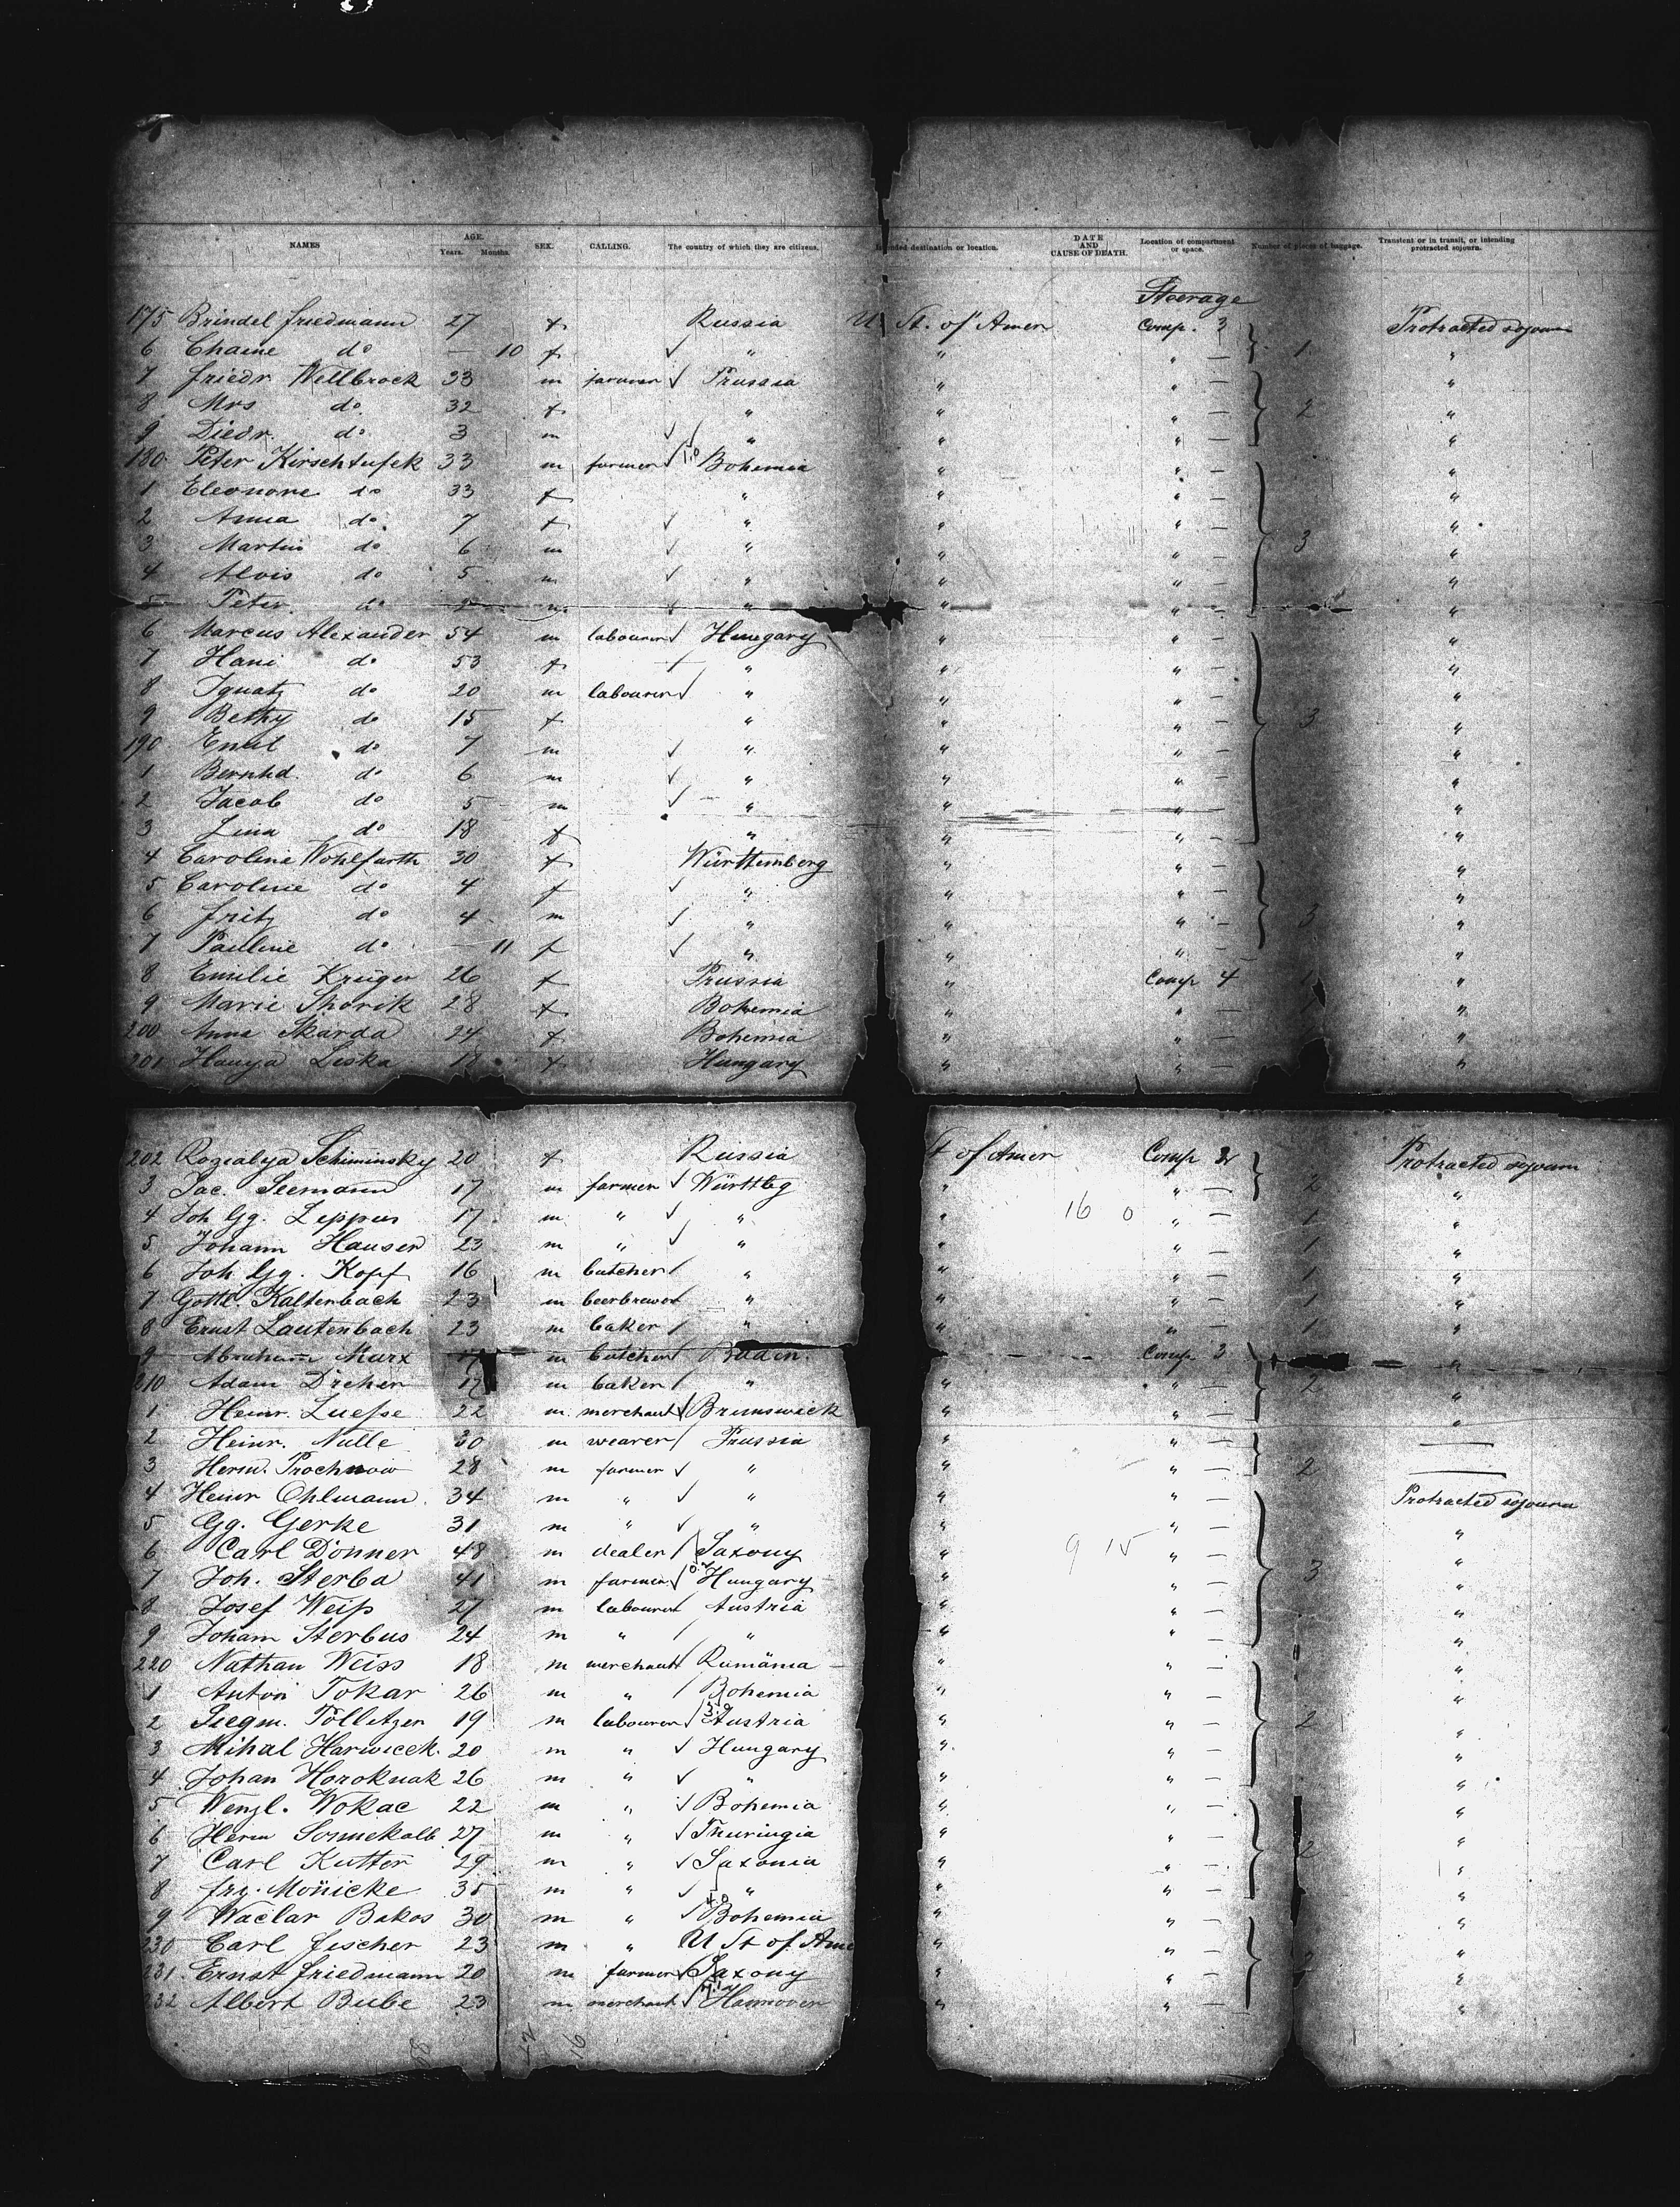 NAMES AGE. Years. Months. SEX. CALLING. The country of which they are citizens. Intended destination or location. DATE AND CAUSE OF DEATH. Location of compartment or space. Number of pieces of baggage. Transient or in transit, or intending protracted sojourn.
Steerage
175 Brindel Friedmann 27 f Russia U. St. of Amer Comp. 3 Protracted sojourn
6 Chaine do — 10 f ✓ " " " — 1 "
7 Friedr Wellbrock 33 m farmer ✓ Prussia " " — "
8 Mrs do 32 f " " " — 2 "
9 Diedr. do 3 m ✓ " " " — "
180 Peter Kirschtufek 33 m farmer ✓ Bohemia " " — "
1 Eleonore do 33 f " " " — "
2 Anna do 7 f ✓ " " " — "
3 Martin do 6 m ✓ " " " — 3 "
4 Alois do 5 m ✓ " " " — "
5 Peter do m " " " — "
6 Marcus Alexander 54 m labourer ✓ Hungary " " — "
7 Hani do 53 f " " " — "
8 Ignatz do 20 m labourer ✓ " " " — "
9 Bethy do 15 f " " " — 3 "
190 Emil do 7 m ✓ " " " — "
1 Bernhd. do 6 m ✓ " " " — "
2 Jacob do 5 m ✓ " " " — "
3 Lina do 18 f " " " — "
4 Caroline Wohlfarth 30 f Württemberg " " — "
5 Caroline do 4 f ✓ " " " — "
6 Fritz do 4 m ✓ " " " — 3 "
7 Pauline do — 11 f ✓ " " " — "
8 Emilie Krüger 26 f Prussia " Comp 4 1 "
9 Marie Shorik 28 f Bohemia " " — 1 "
200 Anna Skarda 24 f Bohemia " " — "
201 Hanya Liska 18 f Hungary " " — "
202 Rozalya Schiminsky 20 f Russia St of Amer Comp Protracted sojourn
3 Jac. Seemann 17 m farmer ✓ Württbg " " — 2 "
4 Joh Gg. Leppus 17 m " ✓ " " 16 0 " — 1 "
5 Johann Hauser 23 m " ✓ " " " — 1 "
6 Joh. Gg. Kopf 16 m butcher / " " " — 1 "
7 Gottl. Kaltenbach 23 m beerbrewer " " " — 1 "
8 Ernst Lautenbach 23 m baker / " " " — 1 "
9 Abraham Marx 17 m butcher Baden. Comp. 3 "
210 Adam Dreher 17 m baker / " " " — 2 "
1 Heinr. Luesse 22 m merchant ✓ Brunswick " " — "
2 Heinr. Nulle 30 m wearer / Prussia " " —
3 Herm. Prochnow 28 m farmer ✓ " " " — 2
4 Heinr Ohlmann 34 m " ✓ " " " — Protracted sojourn
5 Gg. Gerke 31 m " ✓ " " " — "
6 Carl Donner 48 m dealer / Saxony " 9 15 " — "
7 Joh. Sterba 41 m farmer Hungary " " — 3 "
8 Josef Weiss 27 m labourer Austria " " — "
9 Johann Sterbus 24 m " / " " " — "
220 Nathan Weiss 18 m merchant Rumänia " " — "
1 Anton Tokar 26 m " / Bohemia " " — "
2 Siegm. Pollitzer 19 m labourer Austria " " — 2 "
3 Mihal Harwicek 20 m " ✓ Hungary " " — "
4 Johan Horoknak 26 m " ✓ " " " — "
5 Wenzl. Wokac 22 m " ✓ Bohemia " " — "
6 Herm Sonnekalb 27 m " ✓ Thuringia " " — "
7 Carl Kutter 29 m " ✓ Saxonia " " — 2 "
8 Frz. Mönicke 35 m " ✓ " " " — "
9 Waclar Bakos 30 m " ✓ Bohemia " " — "
230 Carl Fischer 23 m " U St of Ame " " — "
231 Ernst Friedmann 20 m farmer ✓ Saxony " " — 2 "
232 Albert Bube 23 m merchant ✓ Hannover " " — "